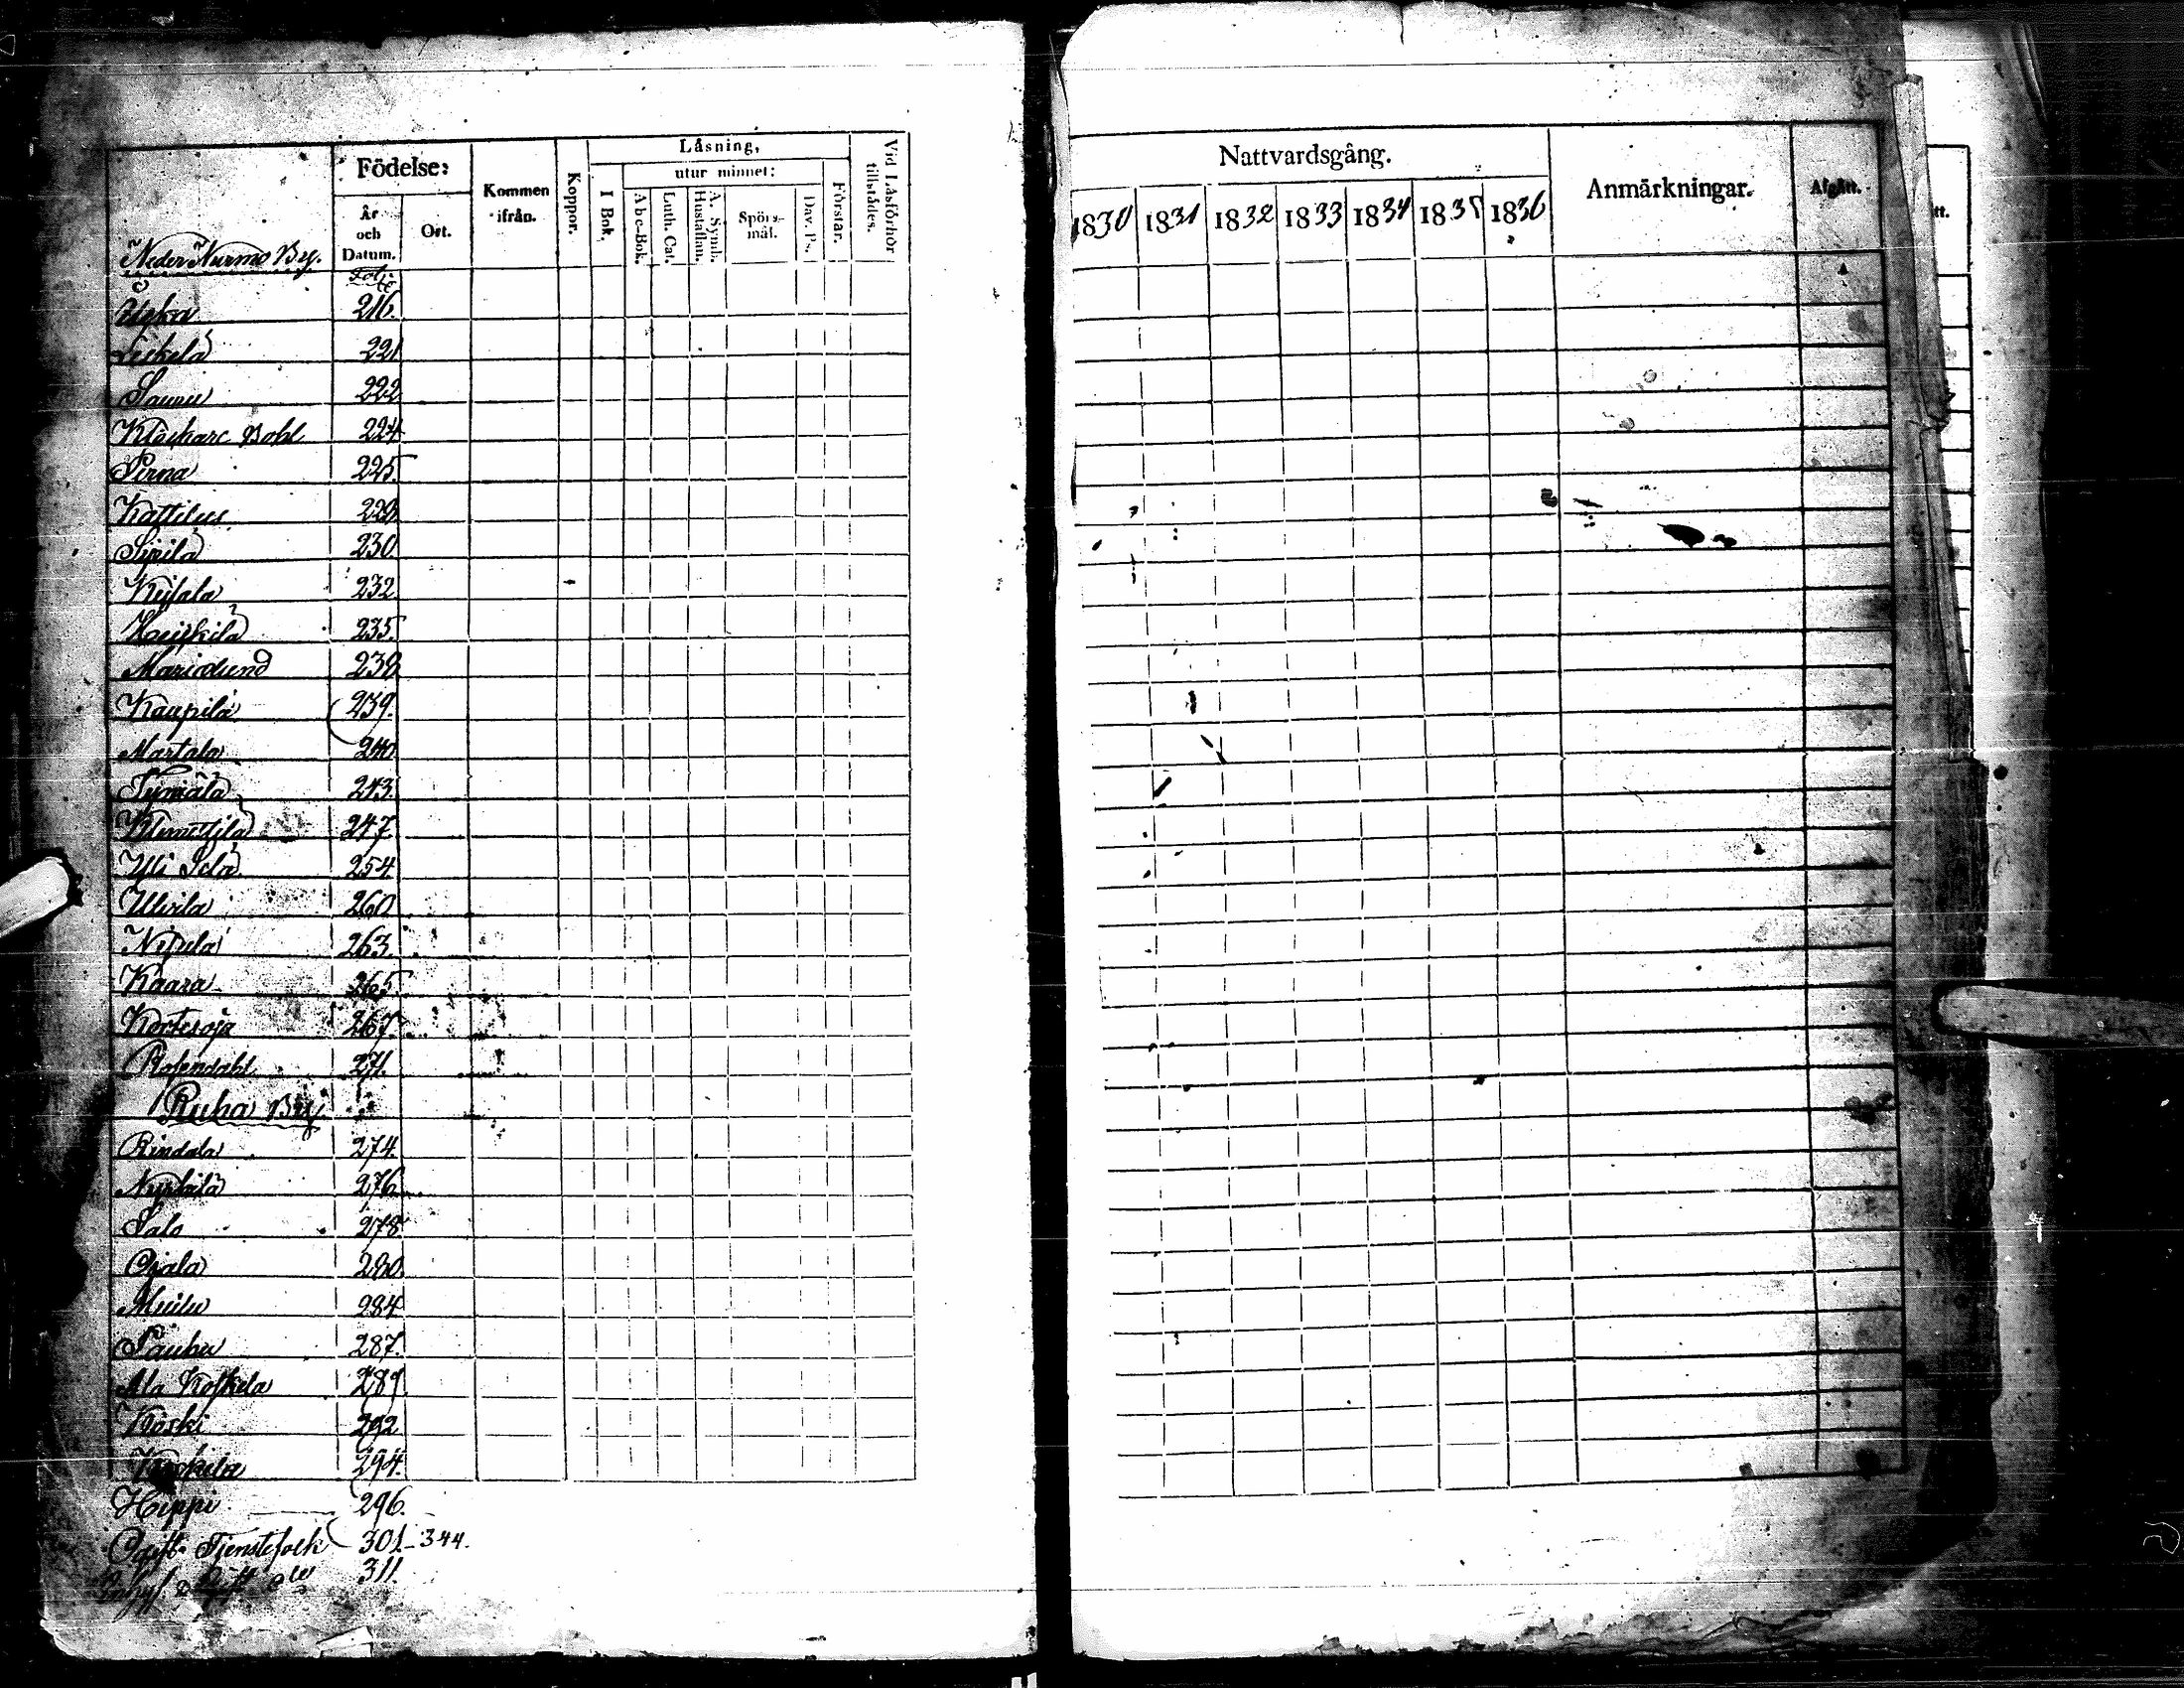 Födelse:
Kommen ifrån.
Koppor.
Låsning,
utur minnet:
I Bok.
Abc-Bok.
Luth. Cat.
A. Symb. Hustaflan.
Spörs-mål.
Dav. Ps.
Förstår.
Vid Låsförhör tillstådes.
År och Datum.
Ort.
Neder Nurmo By.
Folie
216.
Leskelä 221
Sauru 222
Klåckare Bohl 224
Perna 225.
Kattilus 229
Sipilä 230
Keisala 232.
Knuskila 235.
Marielund 238
Kaupila 239.
Martala 240.
Tyrnälä 243.
Klemettilä 247
Yli Sela 254
Ulvila 260
Nisula 263.
Kaara 265.
Kortesoja 267.
Rosendahl 271.
Ruha By.
Rindala 274.
276
Salo 278
Ojala 280.
Muilu 284
Pauhu 287.
Ala Koskela 289.
Koski 292
Koskela 294.
Hippi 296.
Ogift Tjenstefolk 301-344.
311.
Nattvardsgång.
1830 1831 1832 1833 1834 1835 1836
Anmårkningar.
Afgått.